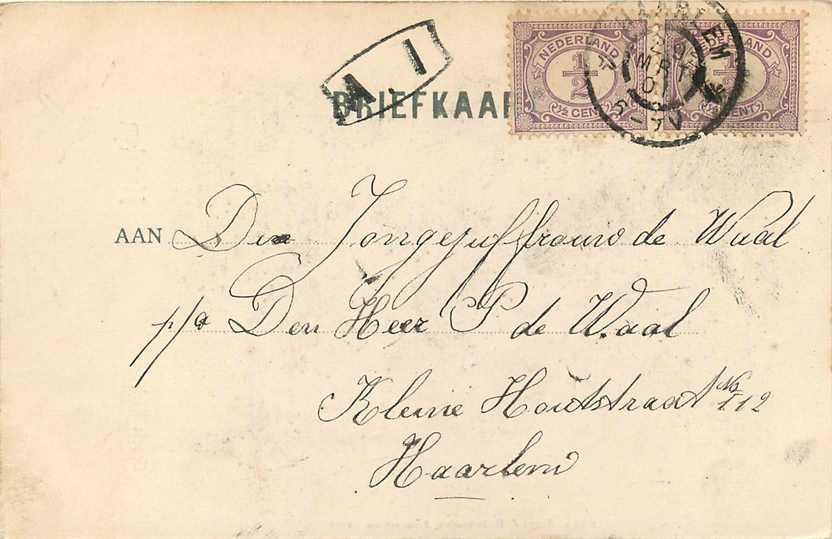 A I
BRIEFKAAR
NEDERLAND 1/2 ½ CENT
NEDERLAND 1/2 ½ CENT
HAARLEM
MRT
01
6-7V
AAN Den Jongejuffrouw de Waal
p/a Den Heer P de Waal
Kleine Houtstraat No 112
Haarlem